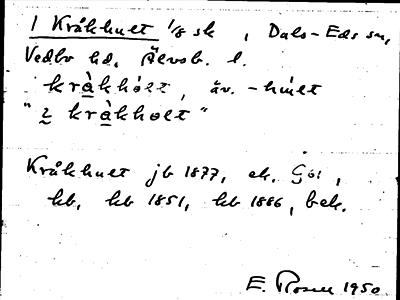 1 Kråkhult 1/8 sk , Dals-Eds sn,
Vedbo hd. Älvsb. l.
kràkhólt, äv. -húlt
" 2 kràkholt "
Kråkhult jb 1877, ek.
kb, kb 1851, kb 1886, bek.
E. Rosell 1950